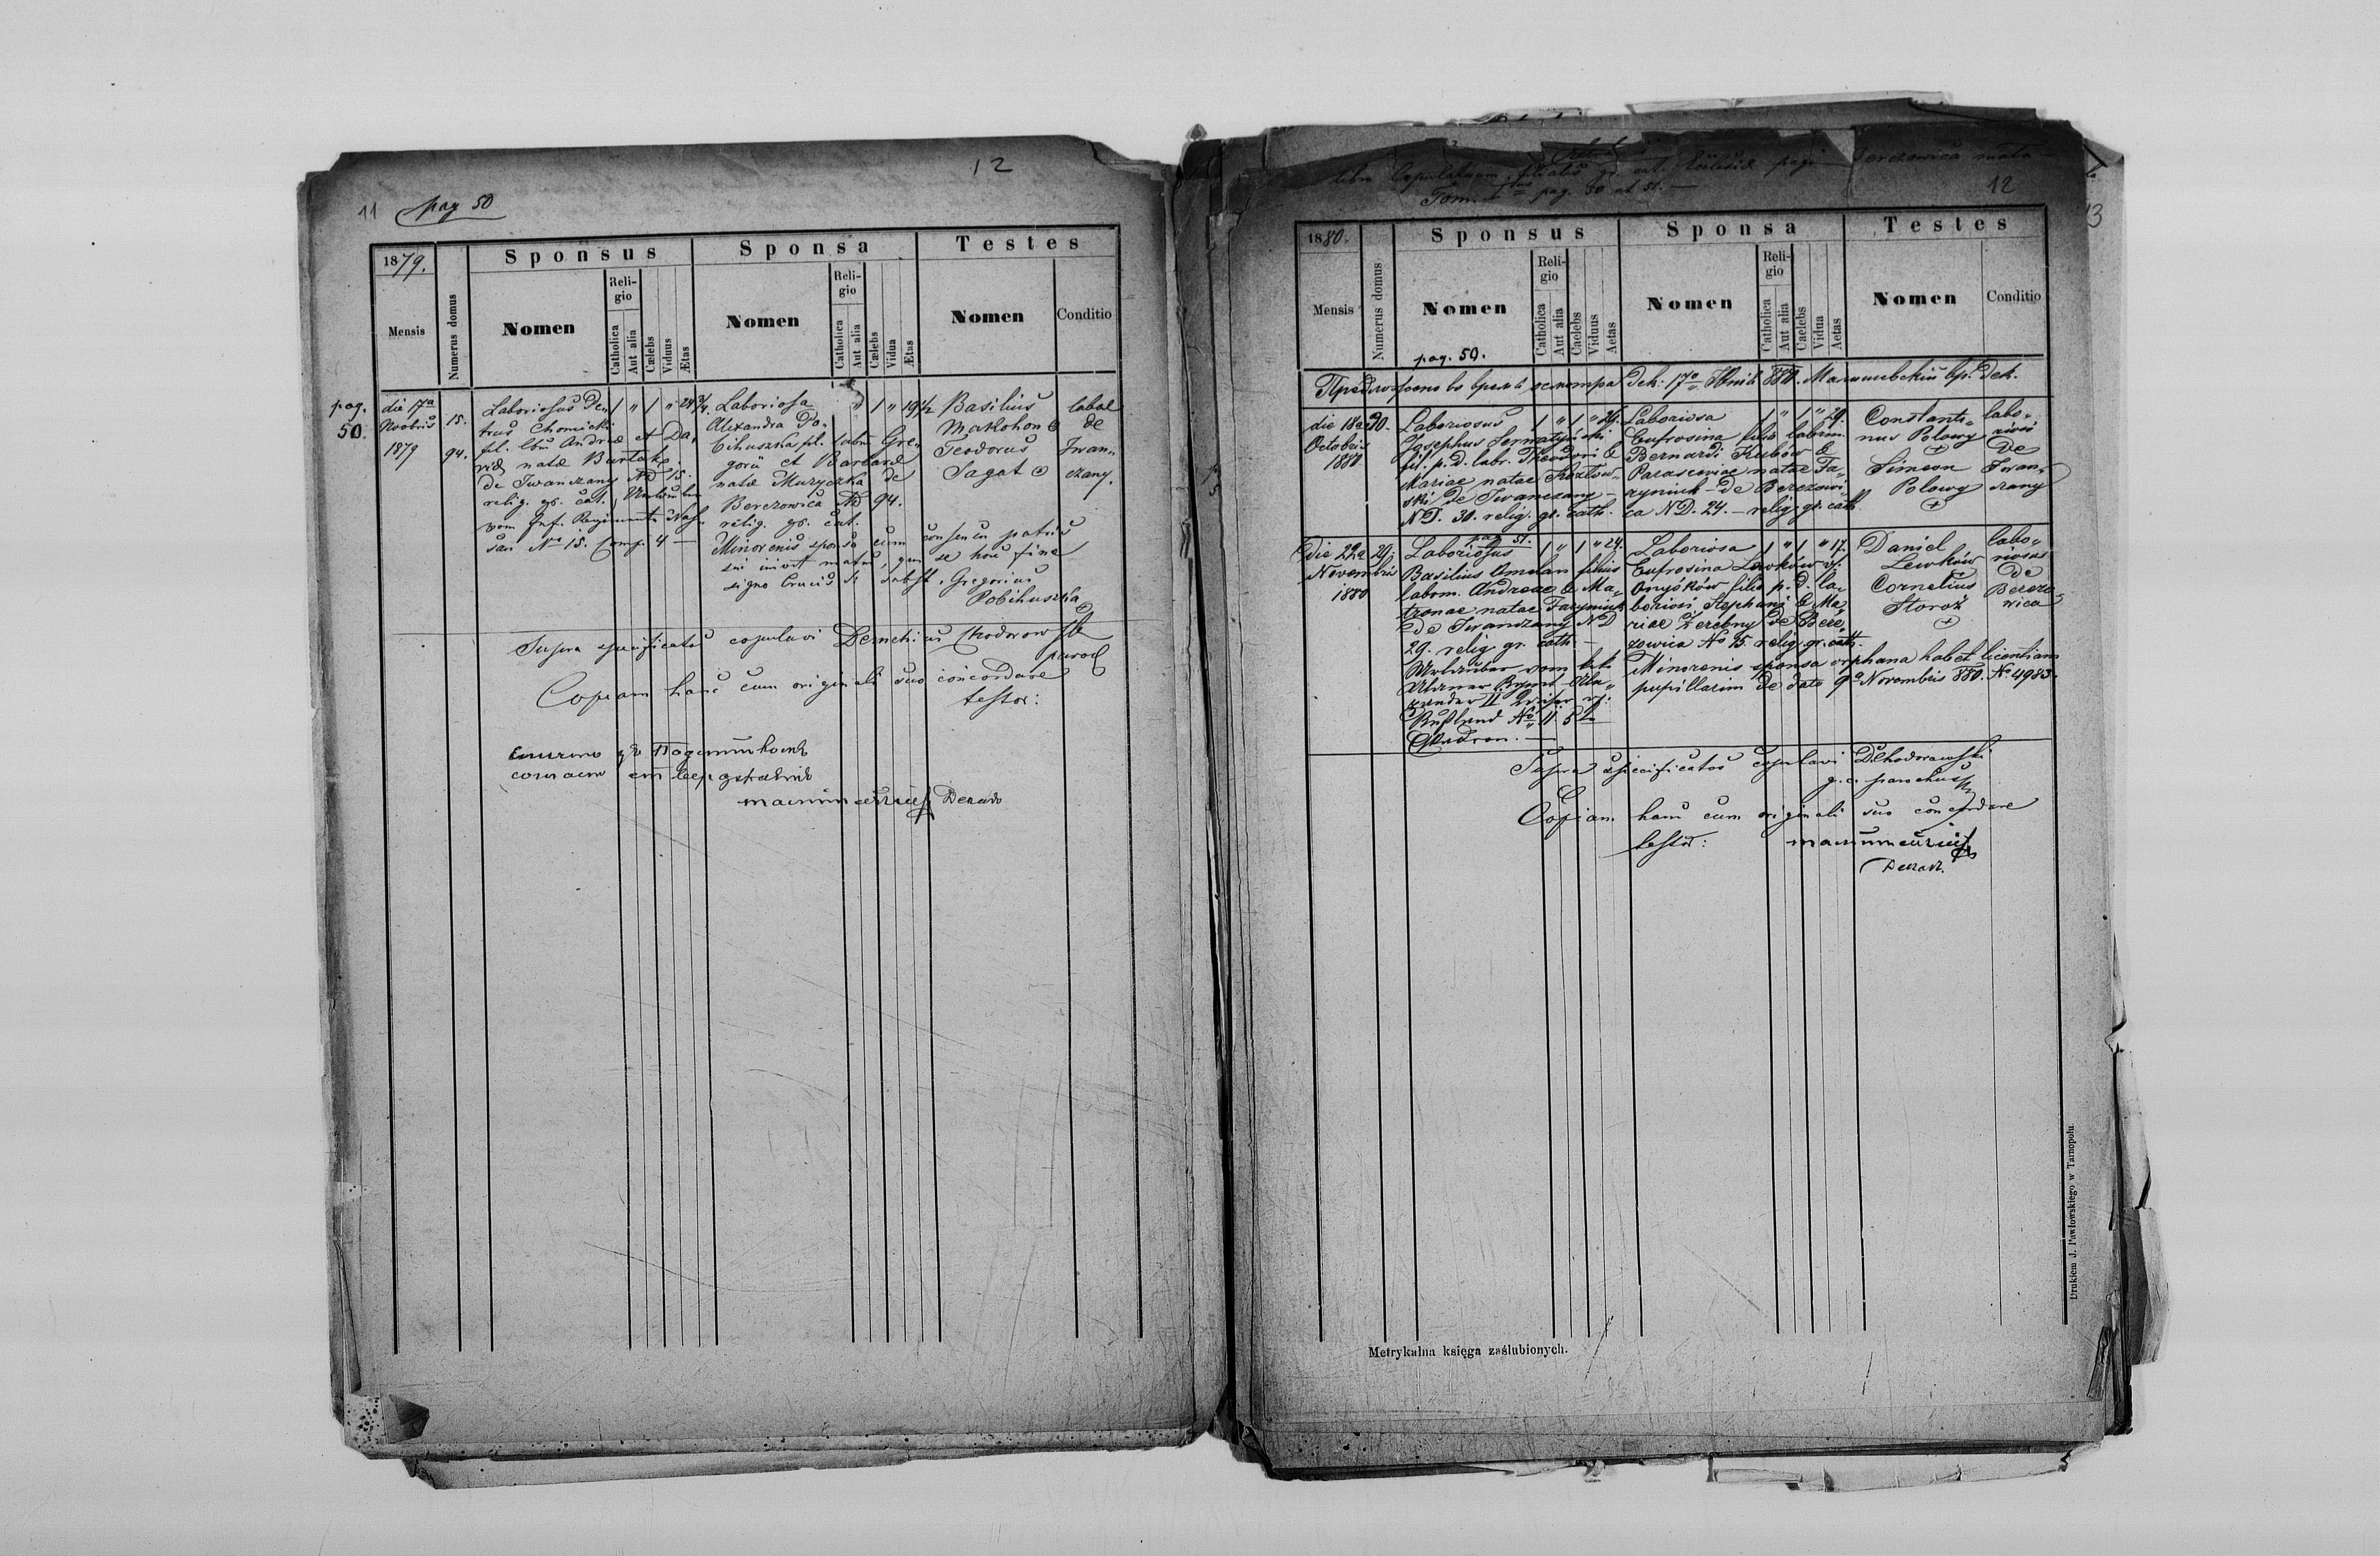 12
11 pag 50
1879.
Mensis
Numerus domus
Sponsus
Nomen
Religio
Catholica
Aut alia
Cælebs
Viduus
Ætas
Sponsa
Nomen
Religio
Catholica
Aut alia
Cælebs
Vidua
Ætas
Testes
Nomen
Conditio
pag. 50.
die 17a
Novbris
1879
15.
94.
Laboriosus Pe-
trus Chomicki
fil. lbm Andreæ et Da-
natæ Burtako
de Iwanczany ND 15.
relig. gr. cat., Urlauber
vom Inf. Regiment
No 15. Comp. 4 —
1 " 1 " 24 3/4.
Laboriosa
Alexandra Po-
bihuszka fil. labm Gre-
gorii et Barbaræ
natæ Muzyczka de
Berezowica ND 94.
relig. gr. cat.
Minorenis sponsa cum consensu patris
sui inivit matrim, qui se hoc fine
signo Crucis subst. Gregorius
Pobihuszka
" 1 " 19 1/2
Basilius
Makohon
Teodorus
Sagat
labor
de
Iwan-
czany.
Supra specificatos copulavi Demetrius Chodorowski
paroch
Copiam hanc cum originali suo concordare
testor:
12
13
Tom. I pag. 50 et 51. —
1880.
Mensis
Numerus domus
Sponsus
Nomen
pag. 50.
Religio
Catholica
Aut alia
Caelebs
Viduus
Aetas
Sponsa
Nomen
Religio
Catholica
Aut alia
Caelebs
Vidua
Aetas
Testes
Nomen
Conditio
die 18a
Octobris
1880
Laboriosus
Josephus
fil. p. D. labr. Theodori &
Mariae natae Kozłow-
ski de Iwanczany —
ND. 30. relig. gr. cath.
1 " 1 " 26.
Laboriosa
Eufrosina filia laborm.
Bernardi Kubów &
Parasceviae natae Ta-
ryniuk — de Berezowi-
ca ND. 24. — relig. gr. cath.
Constanti-
nus Polowy
+
Simeon
Polowy
+
labo-
riosi
De
Iwan-
czany
pag. 51.
Die 22a
Novembris
1880
29.
Laboriosus
Basilius Omelan filius
laborm. Andreae & Ma-
tronae natae Taryniuk
de Iwanczany ND
29. relig. gr. cath. —
Urlauber vom k.k.
Uhlanen Regmt Ale-
xander II
Rußland No 11 5te
1 " 1 " 24.
Laboriosa
Eufrosina Lewków v.
Onyśków filia p. d. la-
boriosi Stephani & Ma-
riae Zerebny de Bere-
zowica No 15. relig. gr. cath.
Minorenis sponsa orphana habet licentiam
pupillarim de dato 9a Novembris 880. No 4983.
1 " 1 " 17.
Daniel
Lewków
+
Cornelius
Storoż
+
labo-
riosus
De
Berezo-
wica
Supra specificatos copulavi D. Chodorowski
g. c. parochus
Copiam hanc cum originali suo concordare
testor:
Metrykalna księga zaślubionych.
Drukiem J. Pawłowskiego w Tarnopolu